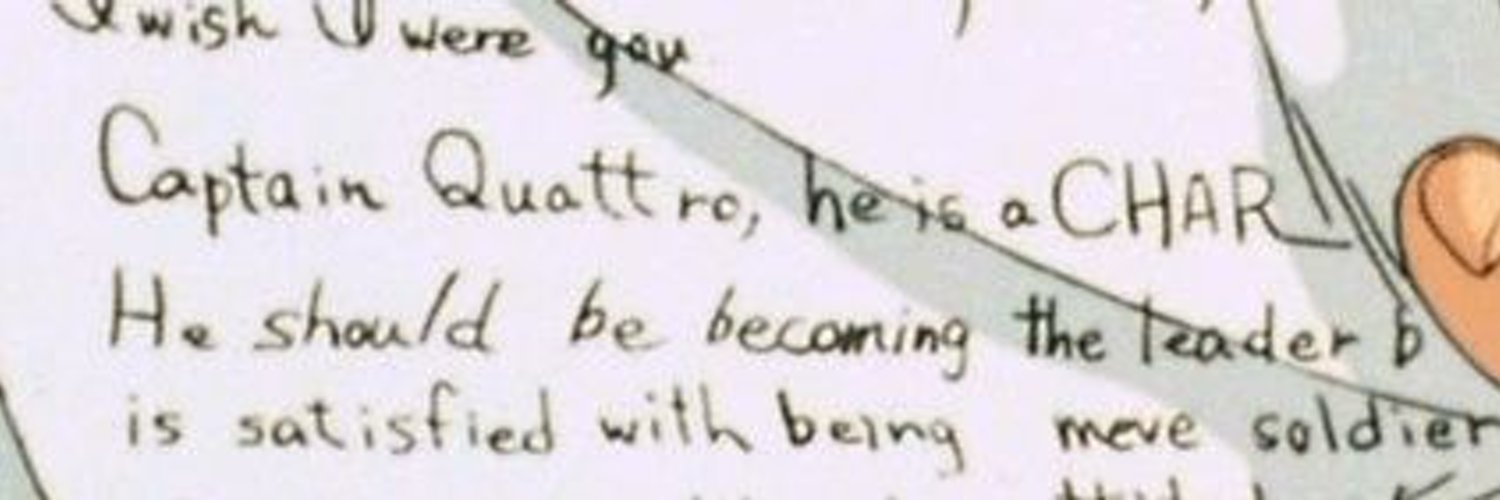 I wish I were gay
Captain Quattro, he is a CHAR
He should be becoming the leader b
is satisfied with being meve soldier